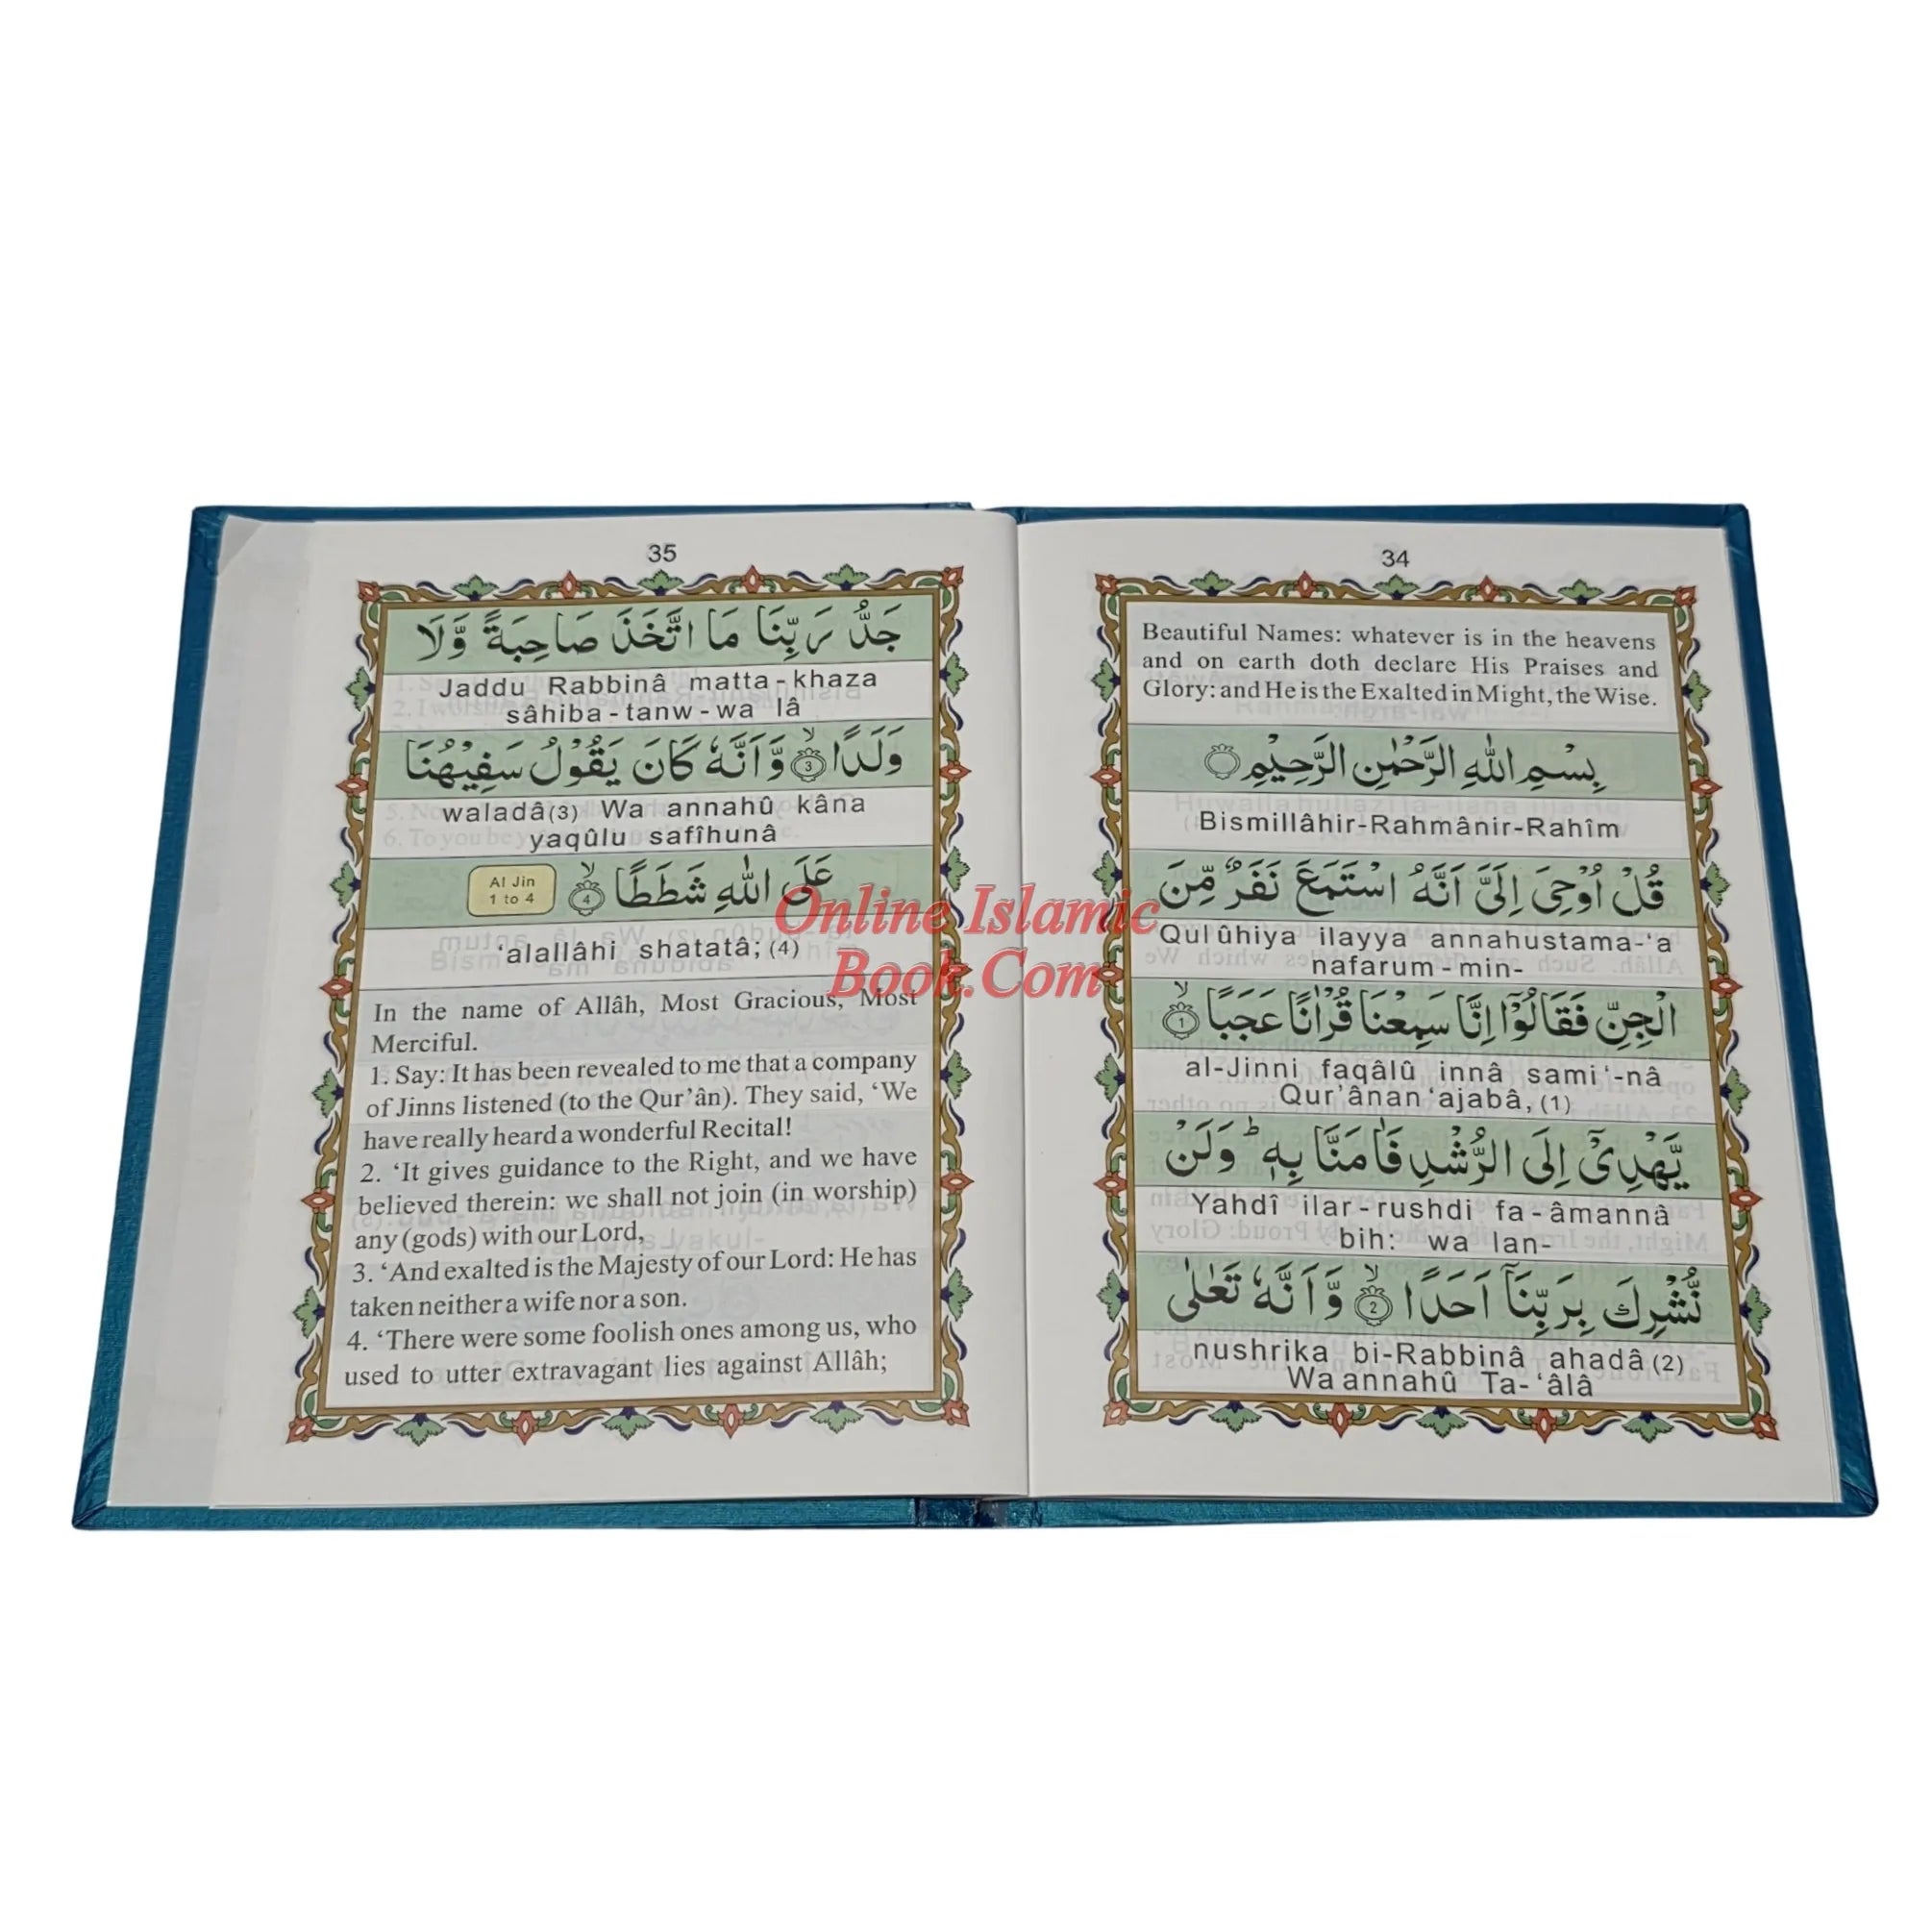 34
Beautiful Names: whatever is in the heavens
and on earth doth declare His Praises and
Glory: and He is the Exalted in Might, the Wise.
بِسْمِ اللهِ الرَّحْمٰنِ الرَّحِيْمِ
Bismillâhir-Rahmânir-Rahîm
قُلْ اُوْحِيَ اِلَيَّ اَنَّهُ اسْتَمَعَ نَفَرٌ مِّنَ
Qul ûhiya ilayya annahustama-‘a
nafarum-min-
الْجِنِّ فَقَالُوْٓا اِنَّا سَمِعْنَا قُرْاٰنًا عَجَبًا ۙ 1
al-Jinni faqâlû innâ sami‘-nâ
Qur’ânan ‘ajabâ, (1)
يَّهْدِيْٓ اِلَى الرُّشْدِ فَاٰمَنَّا بِهٖ ؕ وَلَنْ
Yahdî ilar-rushdi fa-âmannâ
bih: wa lan-
نُّشْرِكَ بِرَبِّنَآ اَحَدًا ۙ 2 وَّاَنَّهٗ تَعٰلٰى
nushrika bi-Rabbinâ ahadâ (2)
Wa annahû Ta-‘âlâ
35
جَدُّ رَبِّنَا مَا اتَّخَذَ صَاحِبَةً وَّلَا
Jaddu Rabbinâ matta-khaza
sâhiba-tanw-wa lâ
وَلَدًا ۙ 3 وَّاَنَّهٗ كَانَ يَقُوْلُ سَفِيْهُنَا
waladâ(3) Wa annahû kâna
yaqûlu safîhunâ
عَلَى اللهِ شَطَطًا ۙ 4
Al Jin
1 to 4
‘alallâhi shatatâ; (4)
In the name of Allâh, Most Gracious, Most
Merciful.
1. Say: It has been revealed to me that a company
of Jinns listened (to the Qur’ân). They said, ‘We
have really heard a wonderful Recital!
2. ‘It gives guidance to the Right, and we have
believed therein: we shall not join (in worship)
any (gods) with our Lord,
3. ‘And exalted is the Majesty of our Lord: He has
taken neither a wife nor a son.
4. ‘There were some foolish ones among us, who
used to utter extravagant lies against Allâh;
Online Islamic
Book.Com